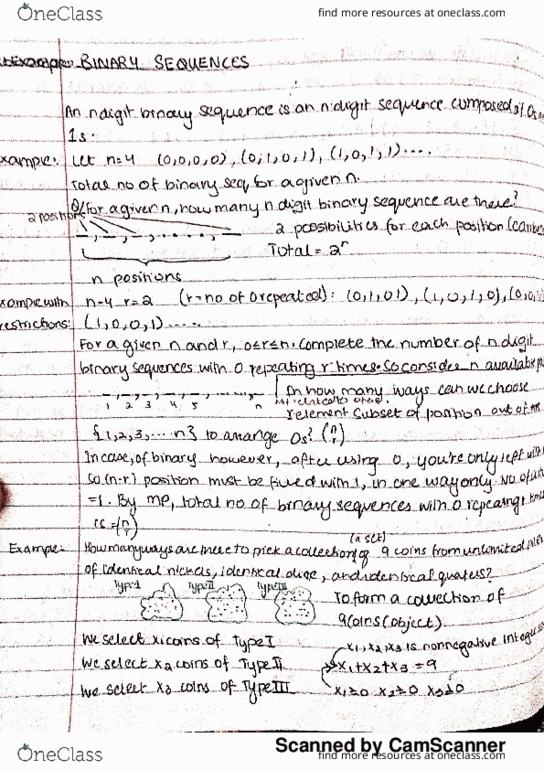 OneClass
find more resources at oneclass.com
Example: BINARY SEQUENCES
An n digit binary sequence is an n digit sequence composed of 0s or
1s.
xample: Let n=4 (0,0,0,0), (0,1,0,1), (1,0,1,1)....
Total no of binary seq for a given n.
Q/ for a given n, how many n digit binary sequence are there?
2 positions
2 possibilities for each position (can be
Total = 2^n
n positions
xample with n=4 r=2 (r=no of 0 repeated): (0,1,0,1), (1,0,1,0), (0,0,1
restrictions: (1,0,0,1).....
For a given n and r, 0≤r≤n. Complete the number of n digit
binary sequences with 0 repeating r times. So consider n available
1 2 3 4 5 n
In how many ways can we choose
r element subset of position out of
{1,2,3,... n} to arrange 0s? (n r)
In case, of binary however, after using 0, you're only left with
So (n-r) position must be fixed with 1, in one way only. No of
=1. By MP, total no of binary sequences with 0 repeating r
is = (n r)
(a set)
Example: How many ways are there to pick a collection of 9 coins from unlimited
of identical nickels, identical dime, and identical quaters?
Type I Type II Type III
To form a collection of
9 coins (object)
We select x1 coins of Type I
x1, x2, x3 is nonnegative integers
We select x2 coins of Type II
x1+x2+x3=9
We select x3 coins of Type III
x1≥0 x2≥0 x3≥0
Scanned by CamScanner
OneClass
find more resources at oneclass.com